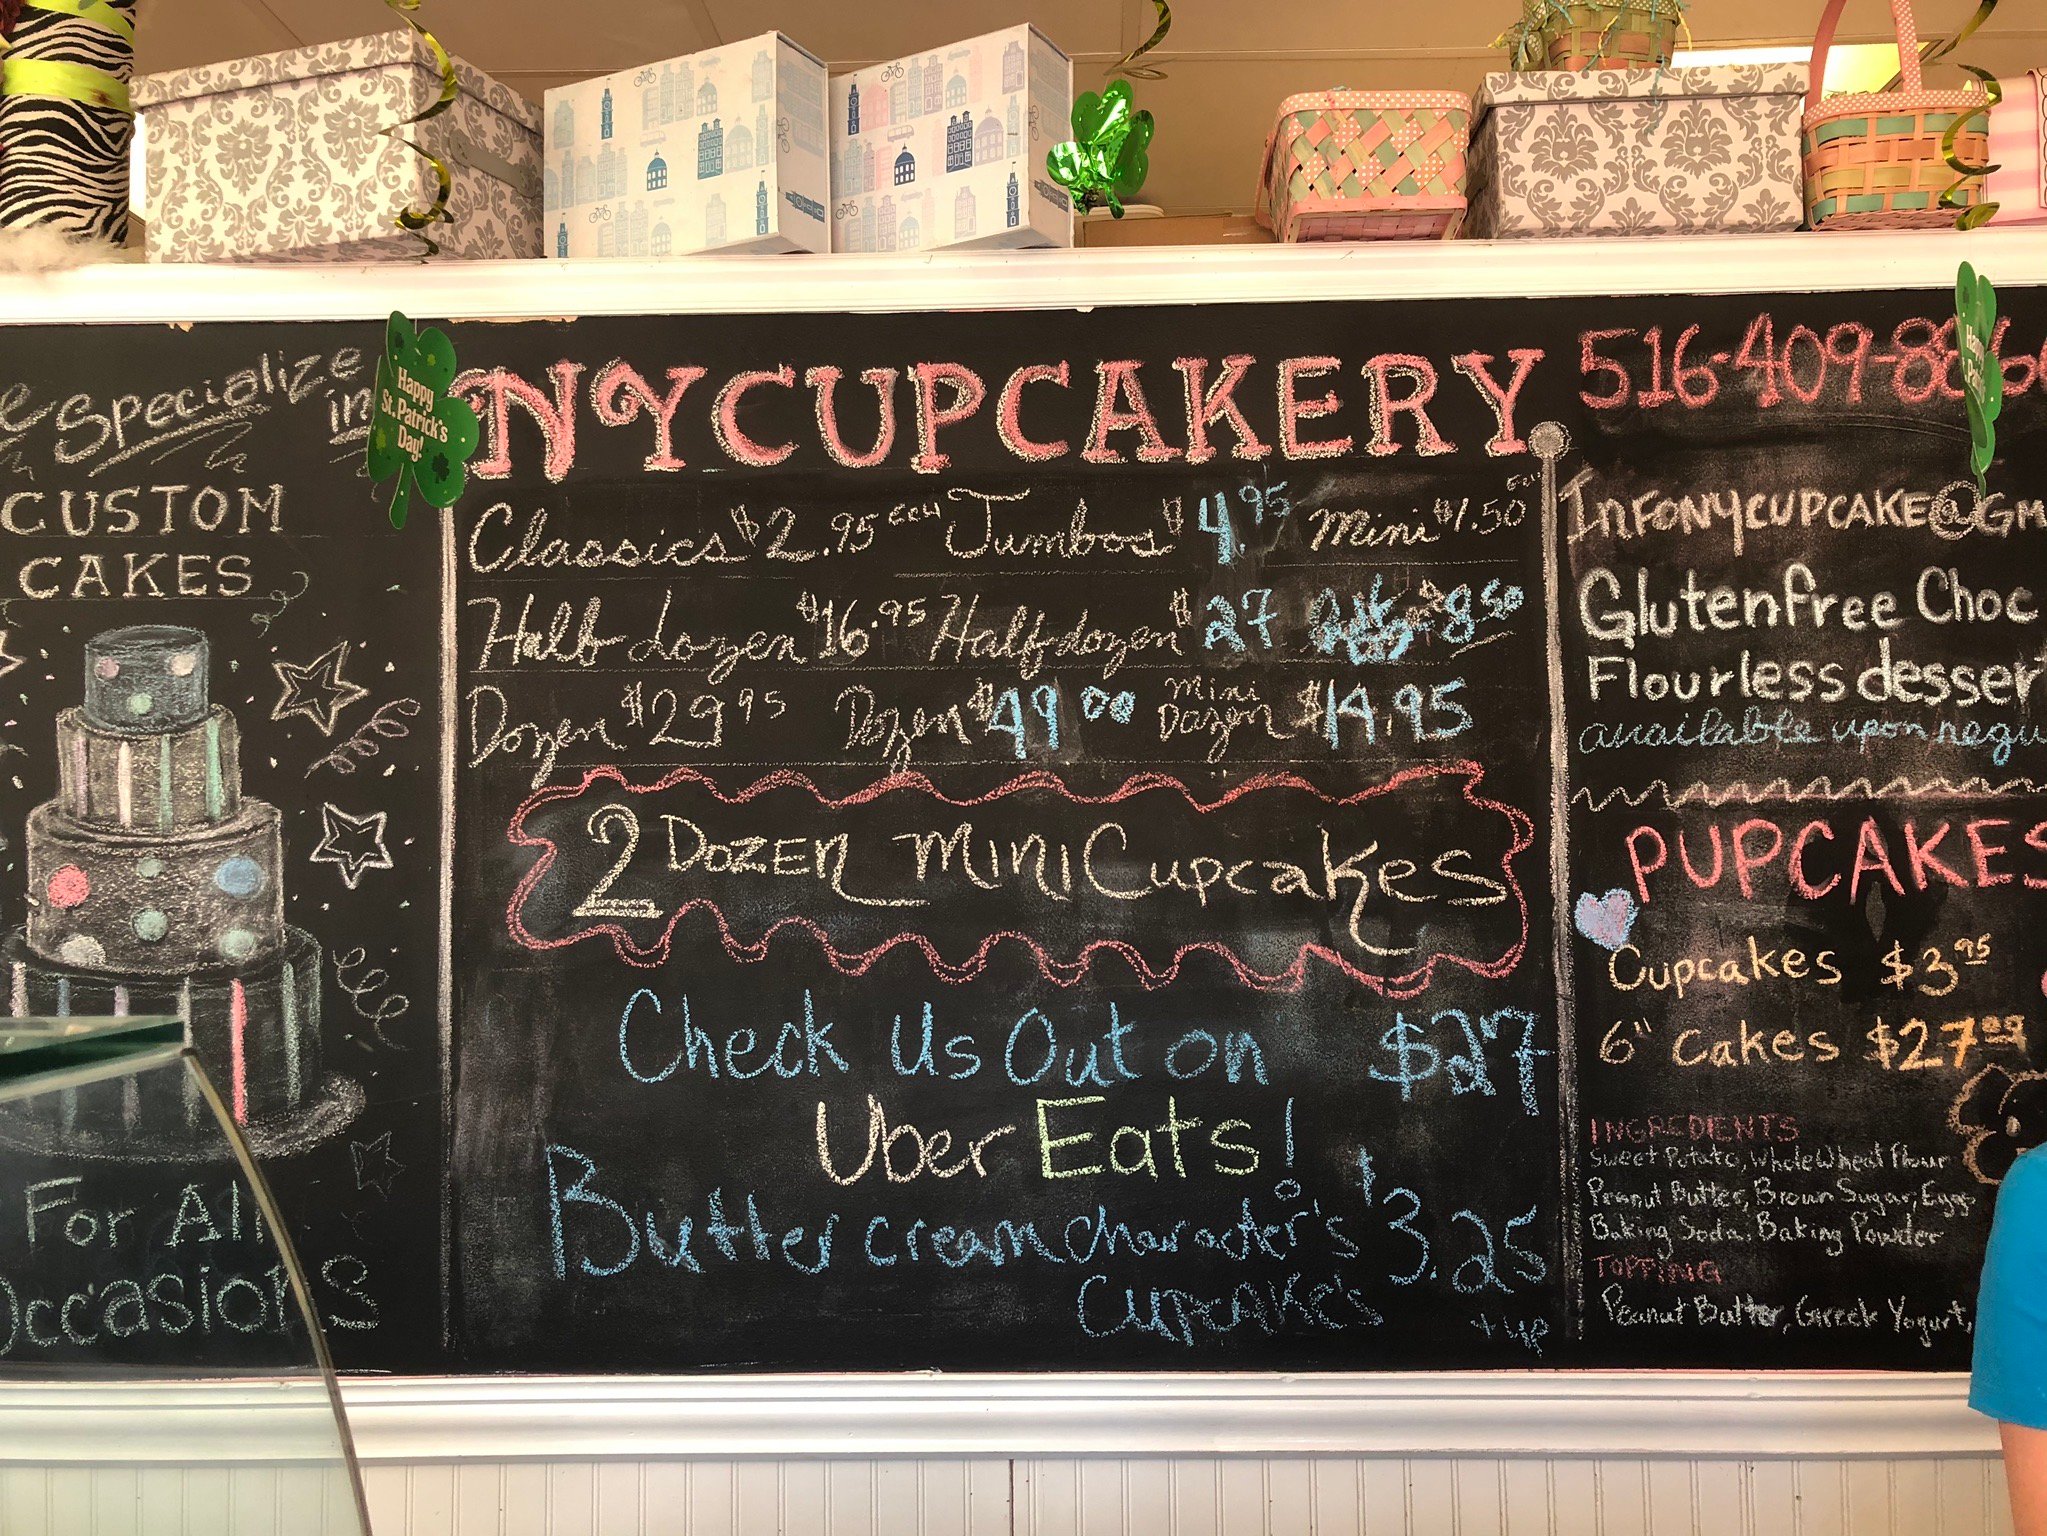 Specialize
in
CUSTOM
CAKES
For All
Occasions
Happy
St. Patrick's
Day!
NYCUPCAKERY
Classics $2.95 each Jumbos $4.95 Mini $1.50
Half dozen $16.95 Half dozen $27 $8.50
Dozen $29.95 Dozen $49.00 Mini Dozen $14.95
2 DOZEN MINI Cupcakes
$27
Check Us Out on
Uber Eats!
Butter cream character's $3.25
Cupcake's + up
516-409-886
Happy
InFoNYCUPCAKE@GM
Gluten free Choc
Flourless desser
available upon requ
PUPCAKES
Cupcakes $3.95
6" Cakes $27.99
INGREDIENTS
Sweet Potato, Whole Wheat Flour
Peanut Butter, Brown Sugar, Eggs
Baking Soda, Baking Powder
TOPPING
Peanut Butter, Greek Yogurt,